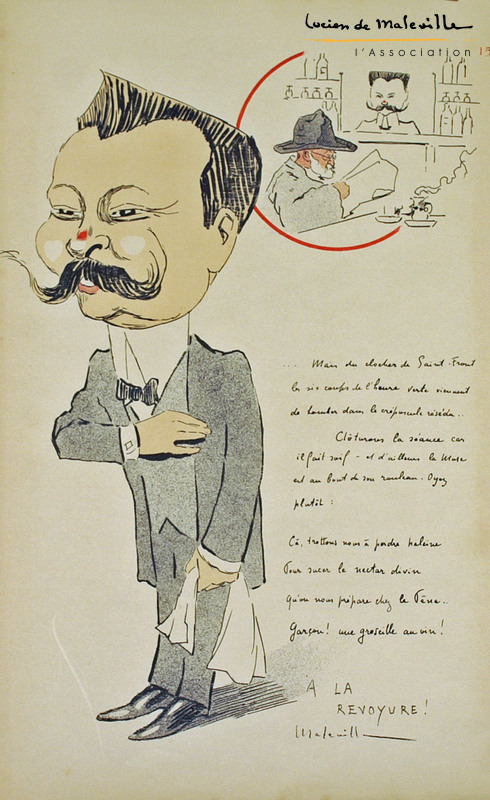 Lucien de Maleville
l'Association
... Mais du clocher de Saint-Front
les six coups de l'heure verte viennent
de tomber dans le crépuscule réséda..
Clôturons la séance car
il fait soif - et d'ailleurs la Muse
est au bout de son rouleau. Oyez
plutôt :
Çà, trottons nous à perdre haleine
Pour sucer le nectar divin
Qu'on nous prépare chez le Père..
Garçon! une groseille au vin!
A LA
REVOYURE!
Maleville